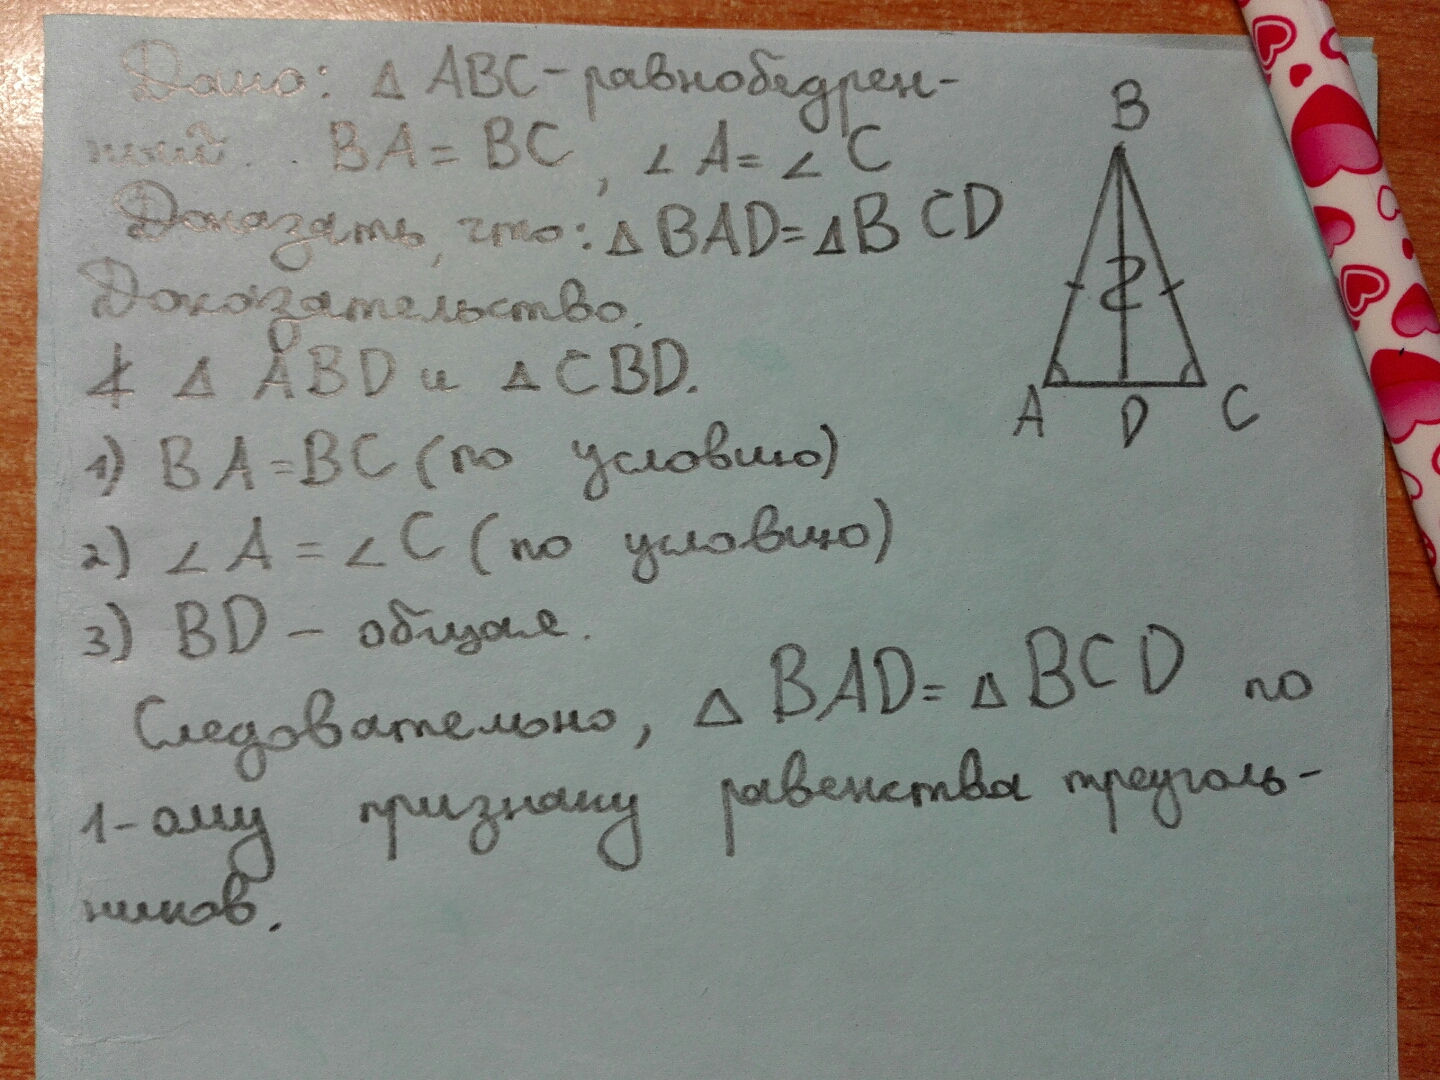 Дано: △ ABC - равнобедрен-
ный. BA = BC, ∠ A = ∠ C
Доказать, что: △ BAD = △ BCD
Доказательство.
∡ △ ABD и △ CBD.
1) BA = BC (по условию)
2) ∠ A = ∠ C (по условию)
3) BD - общая.
Следовательно, △ BAD = △ BCD по
1-ому признаку равенства треуголь-
ников.
B
A D C